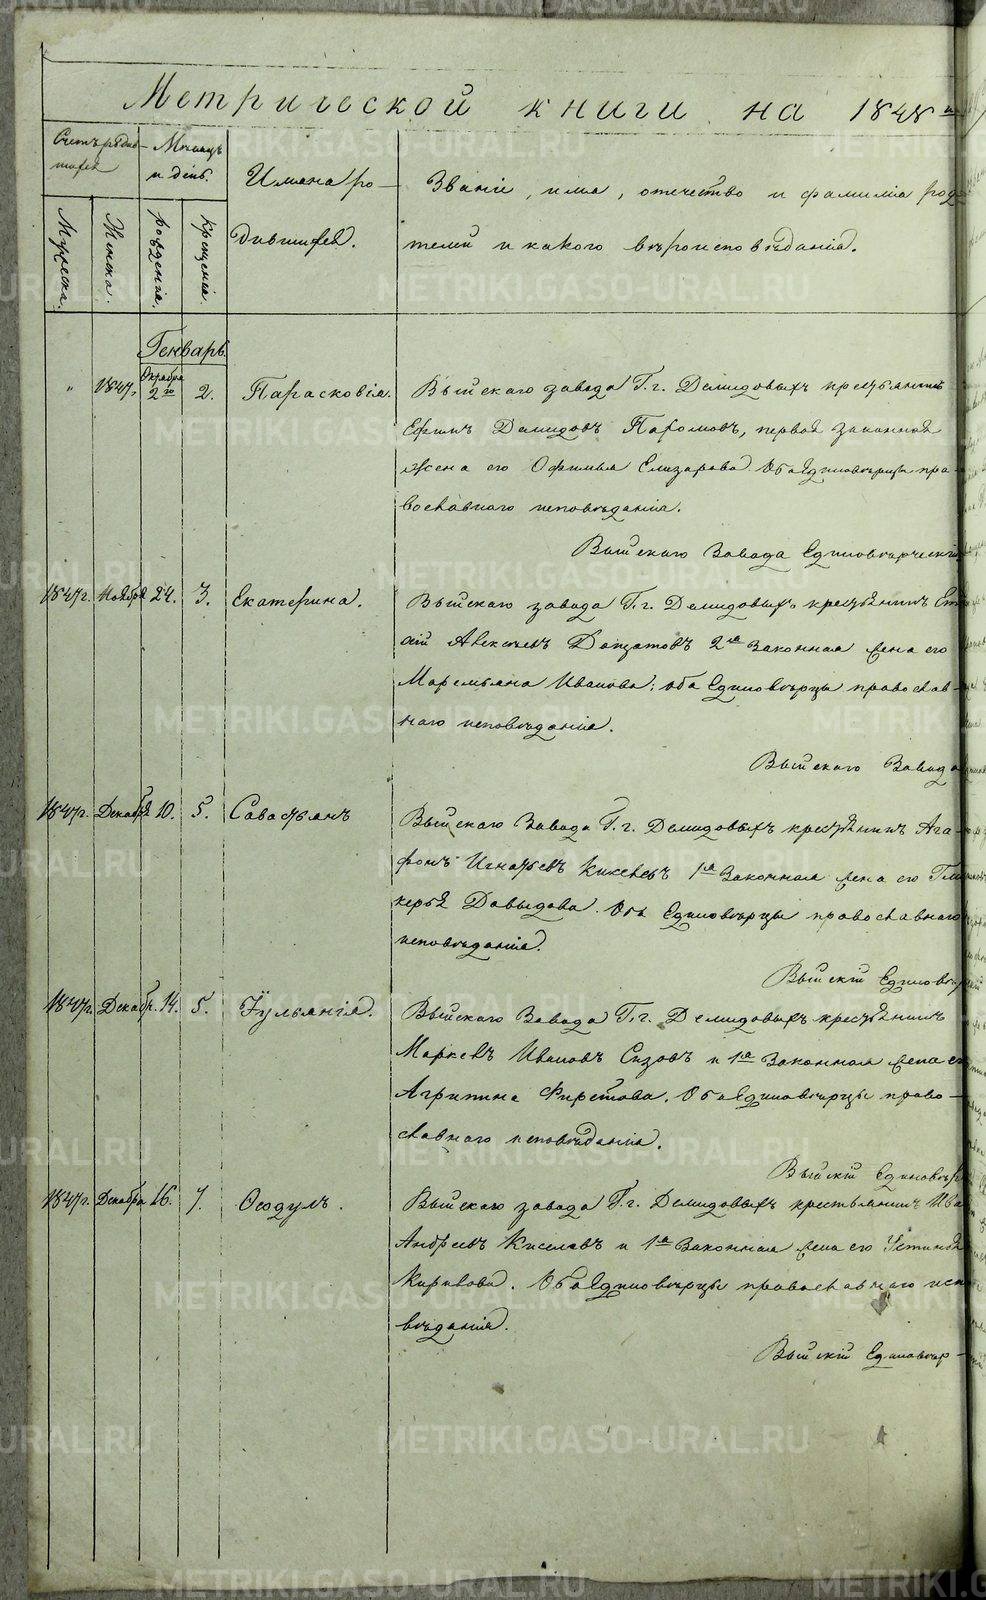 Метрической книги на 1848
Счетъ родив-
шихся
Мѣсяцъ
и день.
Имена ро-
дившихся.
Званіе, имя, отечество и фамилія роди-
телей и какого вѣроисповѣданія.
Мужеска.
Женска.
рожденія.
крещенія.
Генварь
" 1847. Октября 2 2. Парасковія. Выйскаго завода Г. г. Демидовыхъ крестьянинъ
Ефимъ Демидовъ Паромовъ, первая законная
жена его Офимья Елизарова. Оба единовѣрцы пра-
вославнаго исповѣданія.
Выйскаго Завода Единовѣрческій
1847г. Ноября 24. 3. Екатерина. Выйскаго завода Г. г. Демидовыхъ крестьянинъ
Алексѣевъ 2я Законная жена его
Маремьяна Иванова: оба Единовѣрцы православ-
наго исповѣданія.
Выйскаго Завода
1847г. Декабря 10. 5. Савастьянъ Выйскаго Завода Г. г. Демидовыхъ крестьянинъ Ага-
фонъ Игнатьевъ 1я Законная жена его Гли-
керья Давыдова. Оба Единовѣрцы православнаго
исповѣданія.
Выйскій Единовѣр
1847г. Декабр. 14. 5. Іульянія. Выйскаго Завода Г. г. Демидовыхъ крестьянинъ
Маркелъ Ивановъ Сизовъ и 1я Законная жена его
Агрипина Фирсова. Оба Единовѣрцы право-
славнаго исповѣданія.
Выйскій Единовѣр
1847г. Декабря 16. 7. Ѳеодулъ. Выйскаго завода Г. г. Демидовыхъ крестьянинъ Ива
Андреевъ Киселевъ и 1я Законная жена его Устинья
Кирилова. Оба Единовѣрцы православнаго испо
вѣданія.
Выйскій Единовѣр-
METRIKI.GASO-URAL.RU